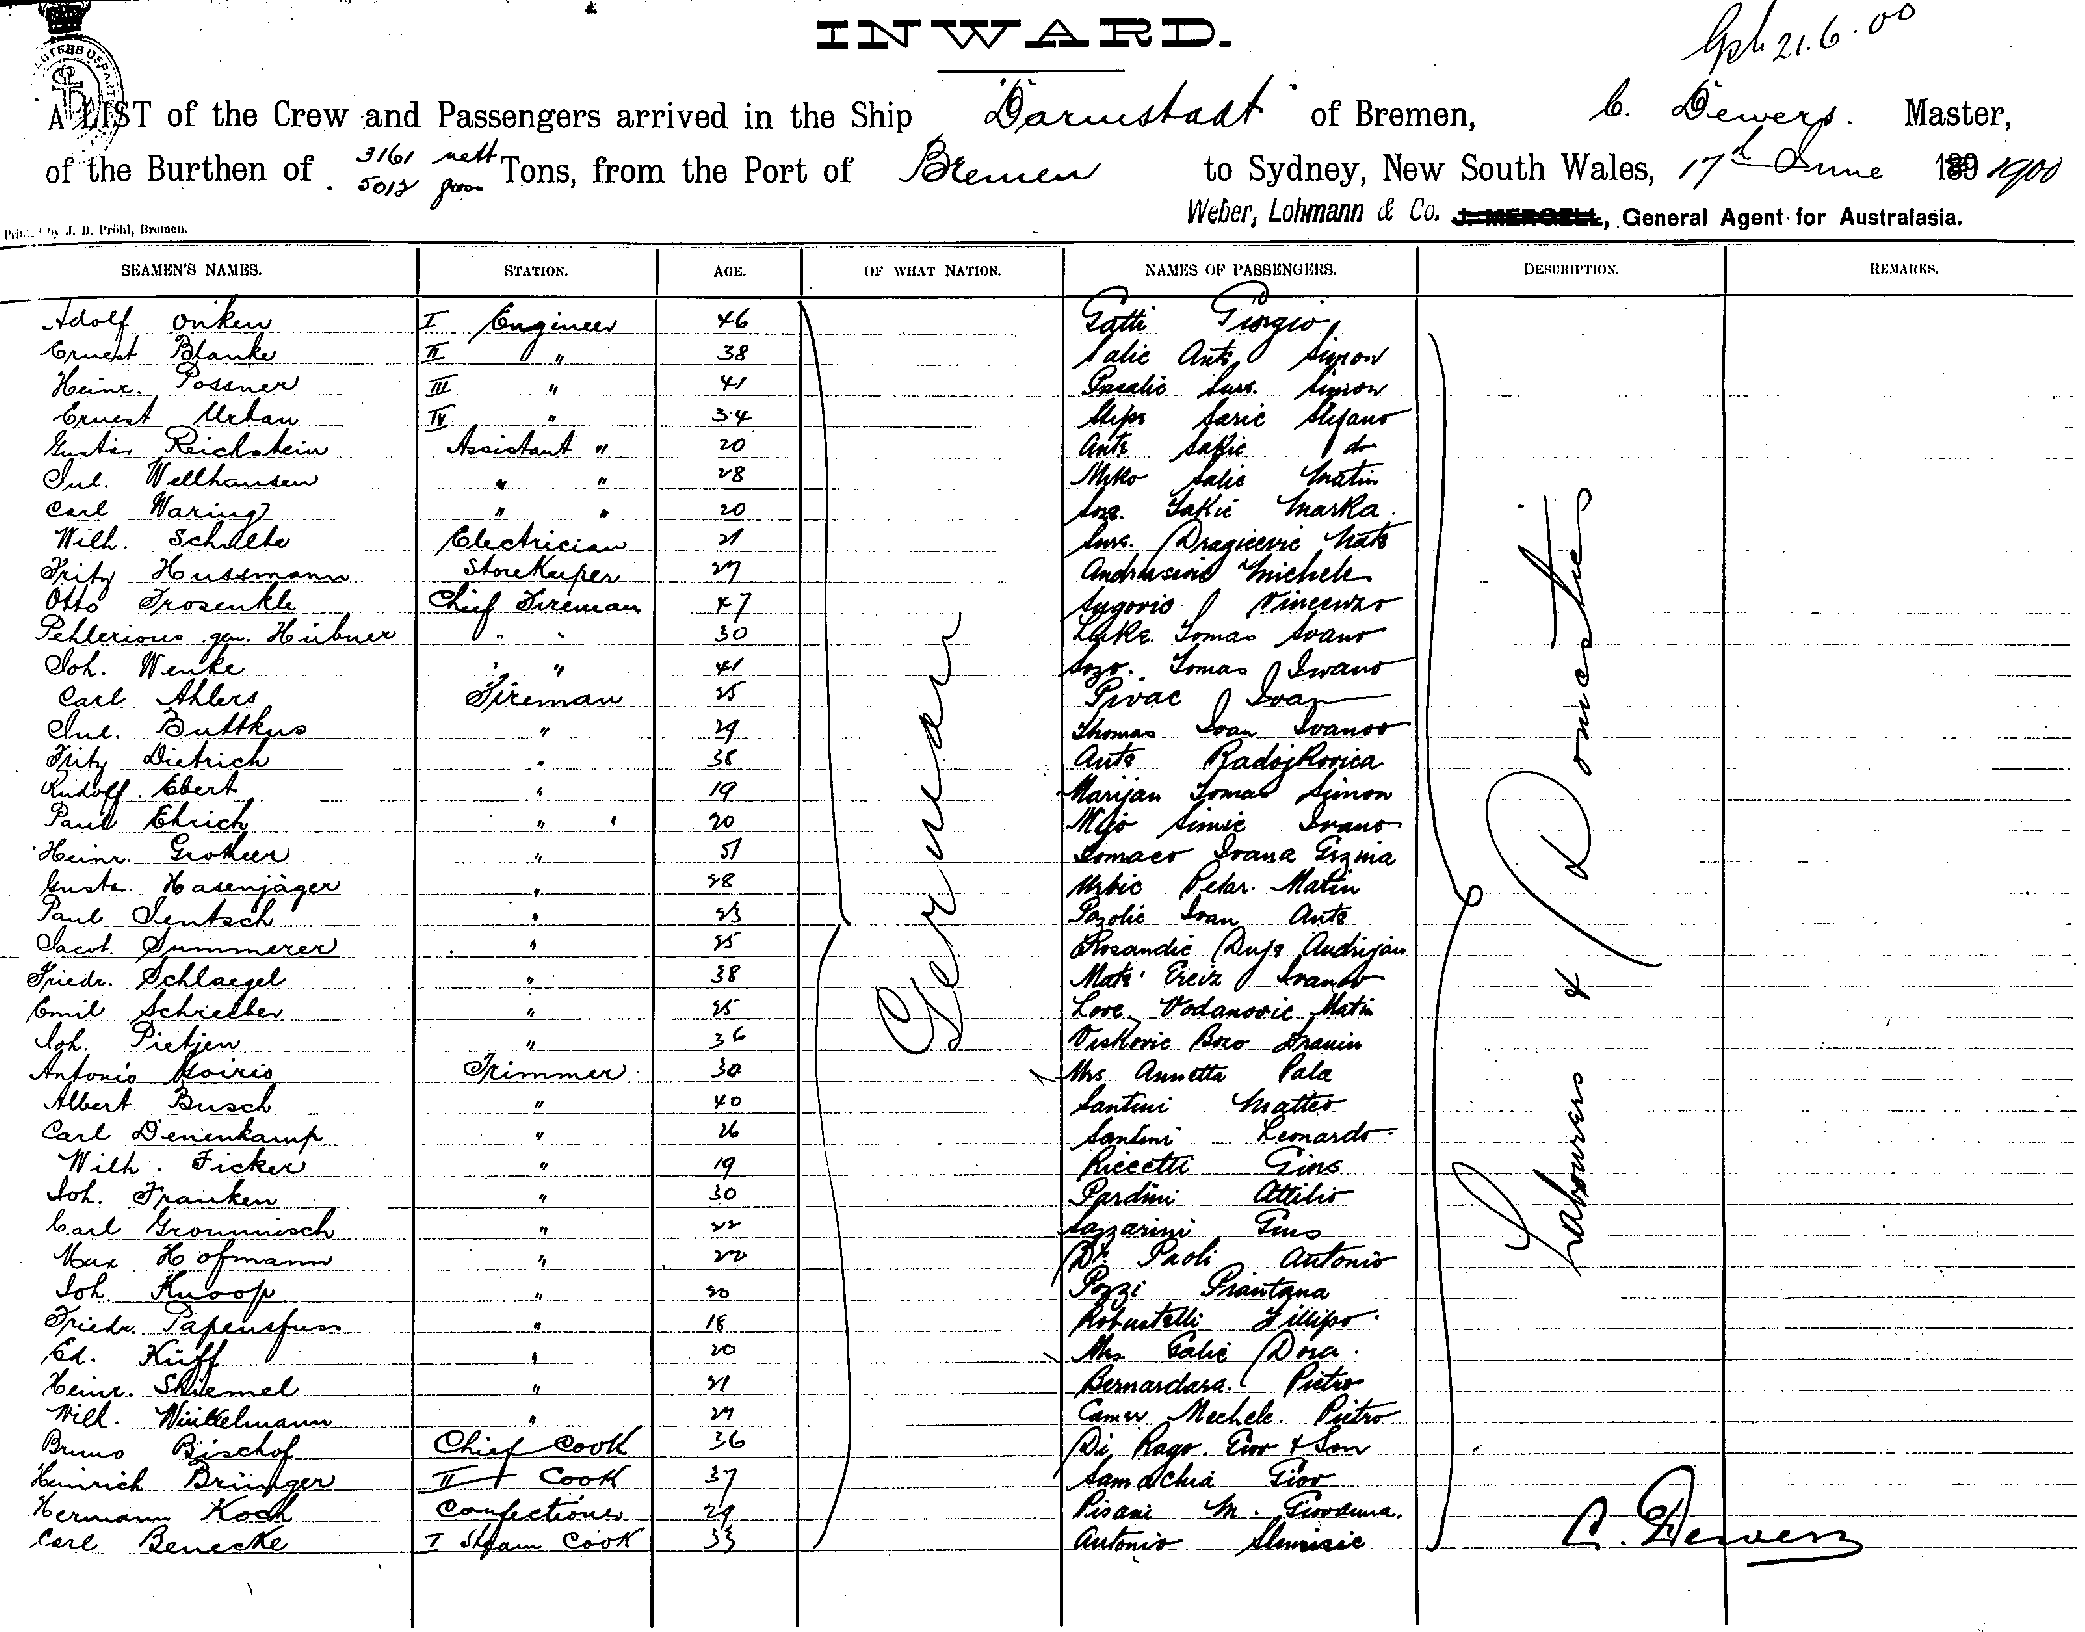 INWARD.
21.6.00
A LIST of the Crew and Passengers arrived in the Ship "Darmstadt" of Bremen, C. Dewers. Master,
of the Burthen of 3161 nett 5012 gross Tons, from the Port of Bremen to Sydney, New South Wales, 17th June 189 1900
Weber, Lohmann & Co. J. MERGELL, General Agent for Australasia.
Printed by J. D. Pröhl, Bremen.
SEAMEN'S NAMES. STATION. AGE. OF WHAT NATION. NAMES OF PASSENGERS. DESCRIPTION. REMARKS.
Adolf Onken I Engineer 46 Gatti Giorgio
Ernest Blanke II " 38 Salic Ante Simon
Heinr. Possner III " 41 Pasalic Simon
Ernest Urban IV " 34 Stipe Saric Stefano
Gustav Reichstein Assistant " 20 Ante Sakic do
Jul. Wellhausen " " 28 Miko Salic Matin
Carl Waring " " 20 Joze. Jakic Marka.
Wilh. Schulte Electrician 21 Jure. Dragicevic Mate
Fritz Hussmann Storekeeper 27 Andrusivic Michele
Otto Frosenkle Chief Fireman 47 Vincenzo
Pehlerious gen. Hübner " " 30 Luke. Tomas Ivano
Joh. Wenke " " 41 Jozo. Tomas Iwano
Carl Ahlers Fireman 25 Pivac Ivan
Jul. Buttkus " 29 Thomas Ivan Ivanov
Fritz Dietrich " 38 Ante Radojkovica
Rudolf Ebert " 19 Marijan Tomas Simon
Paul Ehrich " 20 Mijo Simic Ivano
Heinr. Grotheer " 51 Tomaco Ivana Grzina
Gustv. Hasenjäger " 28 Urbic Petar. Matin
Paul Jentsch " 23 Pazolic Ivan Ante
Jacob Summerer " 25 Rosandic Duje Andrijan
Friedr. Schlaegel " 38 Mate Ereiz Ivano
Emil Schrieber " 25 Love Vodanovic Matin
Joh. Pietjen " 36 Viskovic Bozo
Antonio Trimmer 30 Mrs Annetta Pala
Albert Busch " 40 Santini Matteo
Carl Denenkamp " 26 Santini Leonardo
Wilh. Ficker " 19 Riccetti Gius
Joh. Franken " 30 Pardini Attilio
Carl Groumisch " 22 Lazzarini Gius
Max Hofmann " 20 De Paoli Antonio
Joh. Knoop " 20 Pozzi Giantana
Friedr. Papensfuss " 18 Robustelli Fillipo
Ed. Küff " 20 Mrs Galic Dora.
Heinr. Shiemel " 21 Bernardara. Pietro
Wilh. Winkelmann " 27 Camer Mechele. Pietro
Bruno Bischof Chief Cook 36 Di Rago. Giov & Son
Heinrich Brünger II Cook 37 Samachia Giov
Hermann Koch Confectioner 29 Pisani M. Giovanna.
Carl Benecke I Steam Cook 33 Antonio Slunisic
German
Labourers & Domestics
C. Dewers